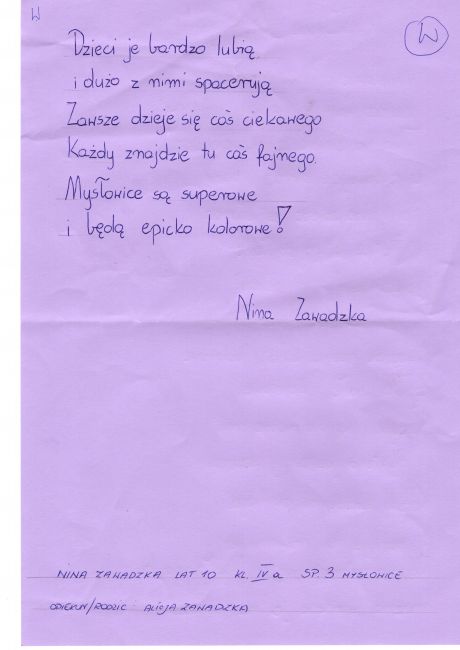 W
W
Dzieci je bardzo lubią
i dużo z nimi spacerują
Zawsze dzieje się coś ciekawego
Każdy znajdzie tu coś fajnego.
Mysłowice są superowe
i będą epicko kolorowe!
Nina Zawadzka
NINA ZAWADZKA LAT 10 KL. IV a SP. 3 MYSŁOWICE
OPIEKUN/RODZIC: ALICJA ZAWADZKA